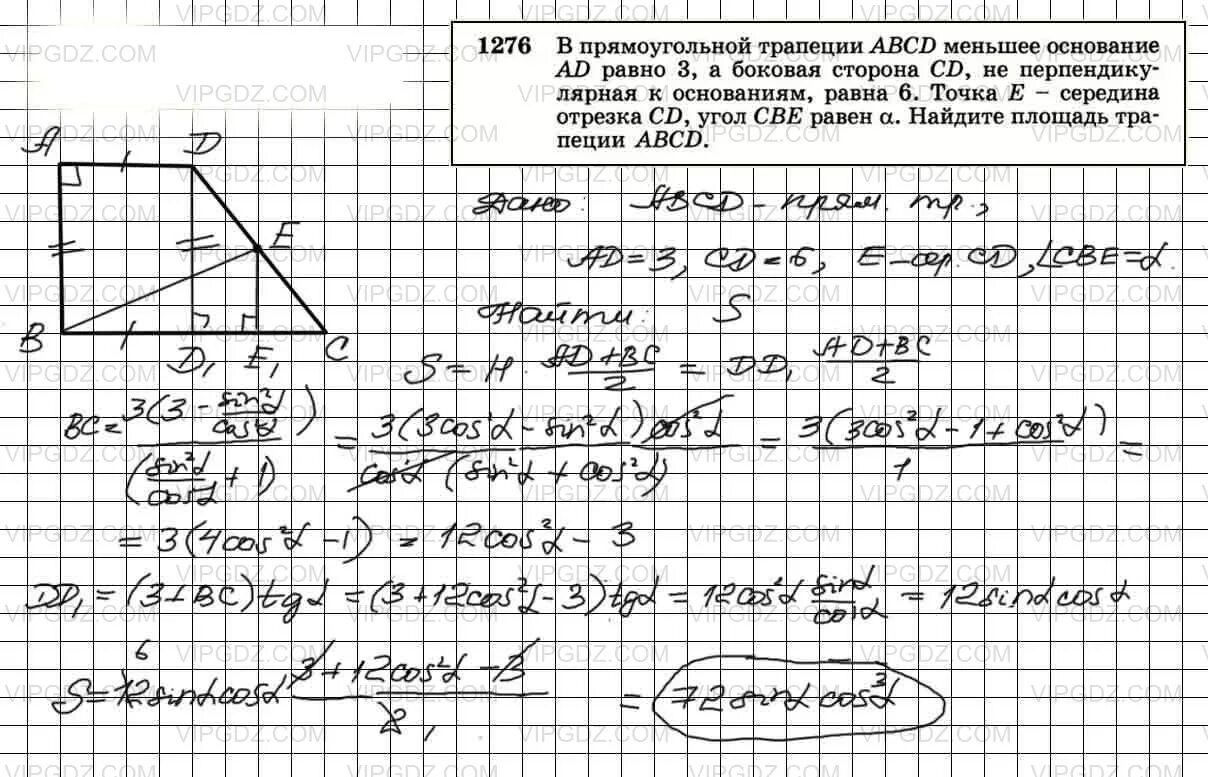 1276 В прямоугольной трапеции ABCD меньшее основание
AD равно 3, а боковая сторона CD, не перпендику-
лярная к основаниям, равна 6. Точка E – середина
отрезка CD, угол CBE равен α. Найдите площадь тра-
пеции ABCD.
A D
E
B D₁ E₁ C
Дано: ABCD – прям. тр.,
AD = 3, CD = 6, E – сер. CD, ∠CBE = α.
Найти: S
S = H · (AD + BC)/2 = DD₁ (AD + BC)/2
BC = 3(3 - sin²α/cos²α)/(sin²α/cos²α + 1) = 3(3cos²α - sin²α)cos²α/cos²α(sin²α + cos²α) = 3(3cos²α - 1 + cos²α)/1 =
= 3(4cos²α - 1) = 12cos²α - 3
DD₁ = (3 + BC)tgα = (3 + 12cos²α - 3)tgα = 12cos²α sinα/cosα = 12sinα cosα
6
S = 12sinα cosα (3 + 12cos²α - 3)/2 = 72sinα cos³α
VIPGDZ.COM